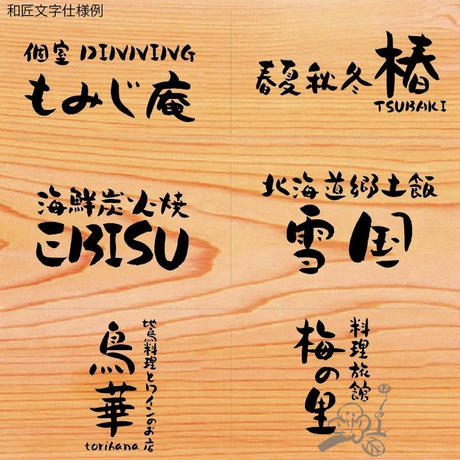 和匠文字仕様例
個室 DINNING
もみじ庵
春夏秋冬 椿
TSUBAKI
海鮮炭火焼
EBISU
北海道郷土飯
雪国
地鳥料理とワインのお店
鳥華
torihana
料理旅館
梅の里